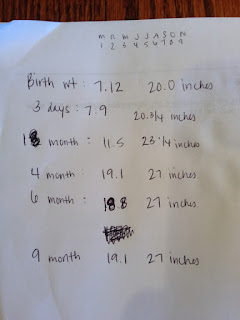 M A M J J A S O N
1 2 3 4 5 6 7 8 9
Birth wt : 7.12 20.0 inches
3 days : 7.9 20.3/4 inches
1 month : 11.5 23 1/4 inches
4 month : 19.1 27 inches
6 month : 18.8 27 inches
9 month 19.1 27 inches